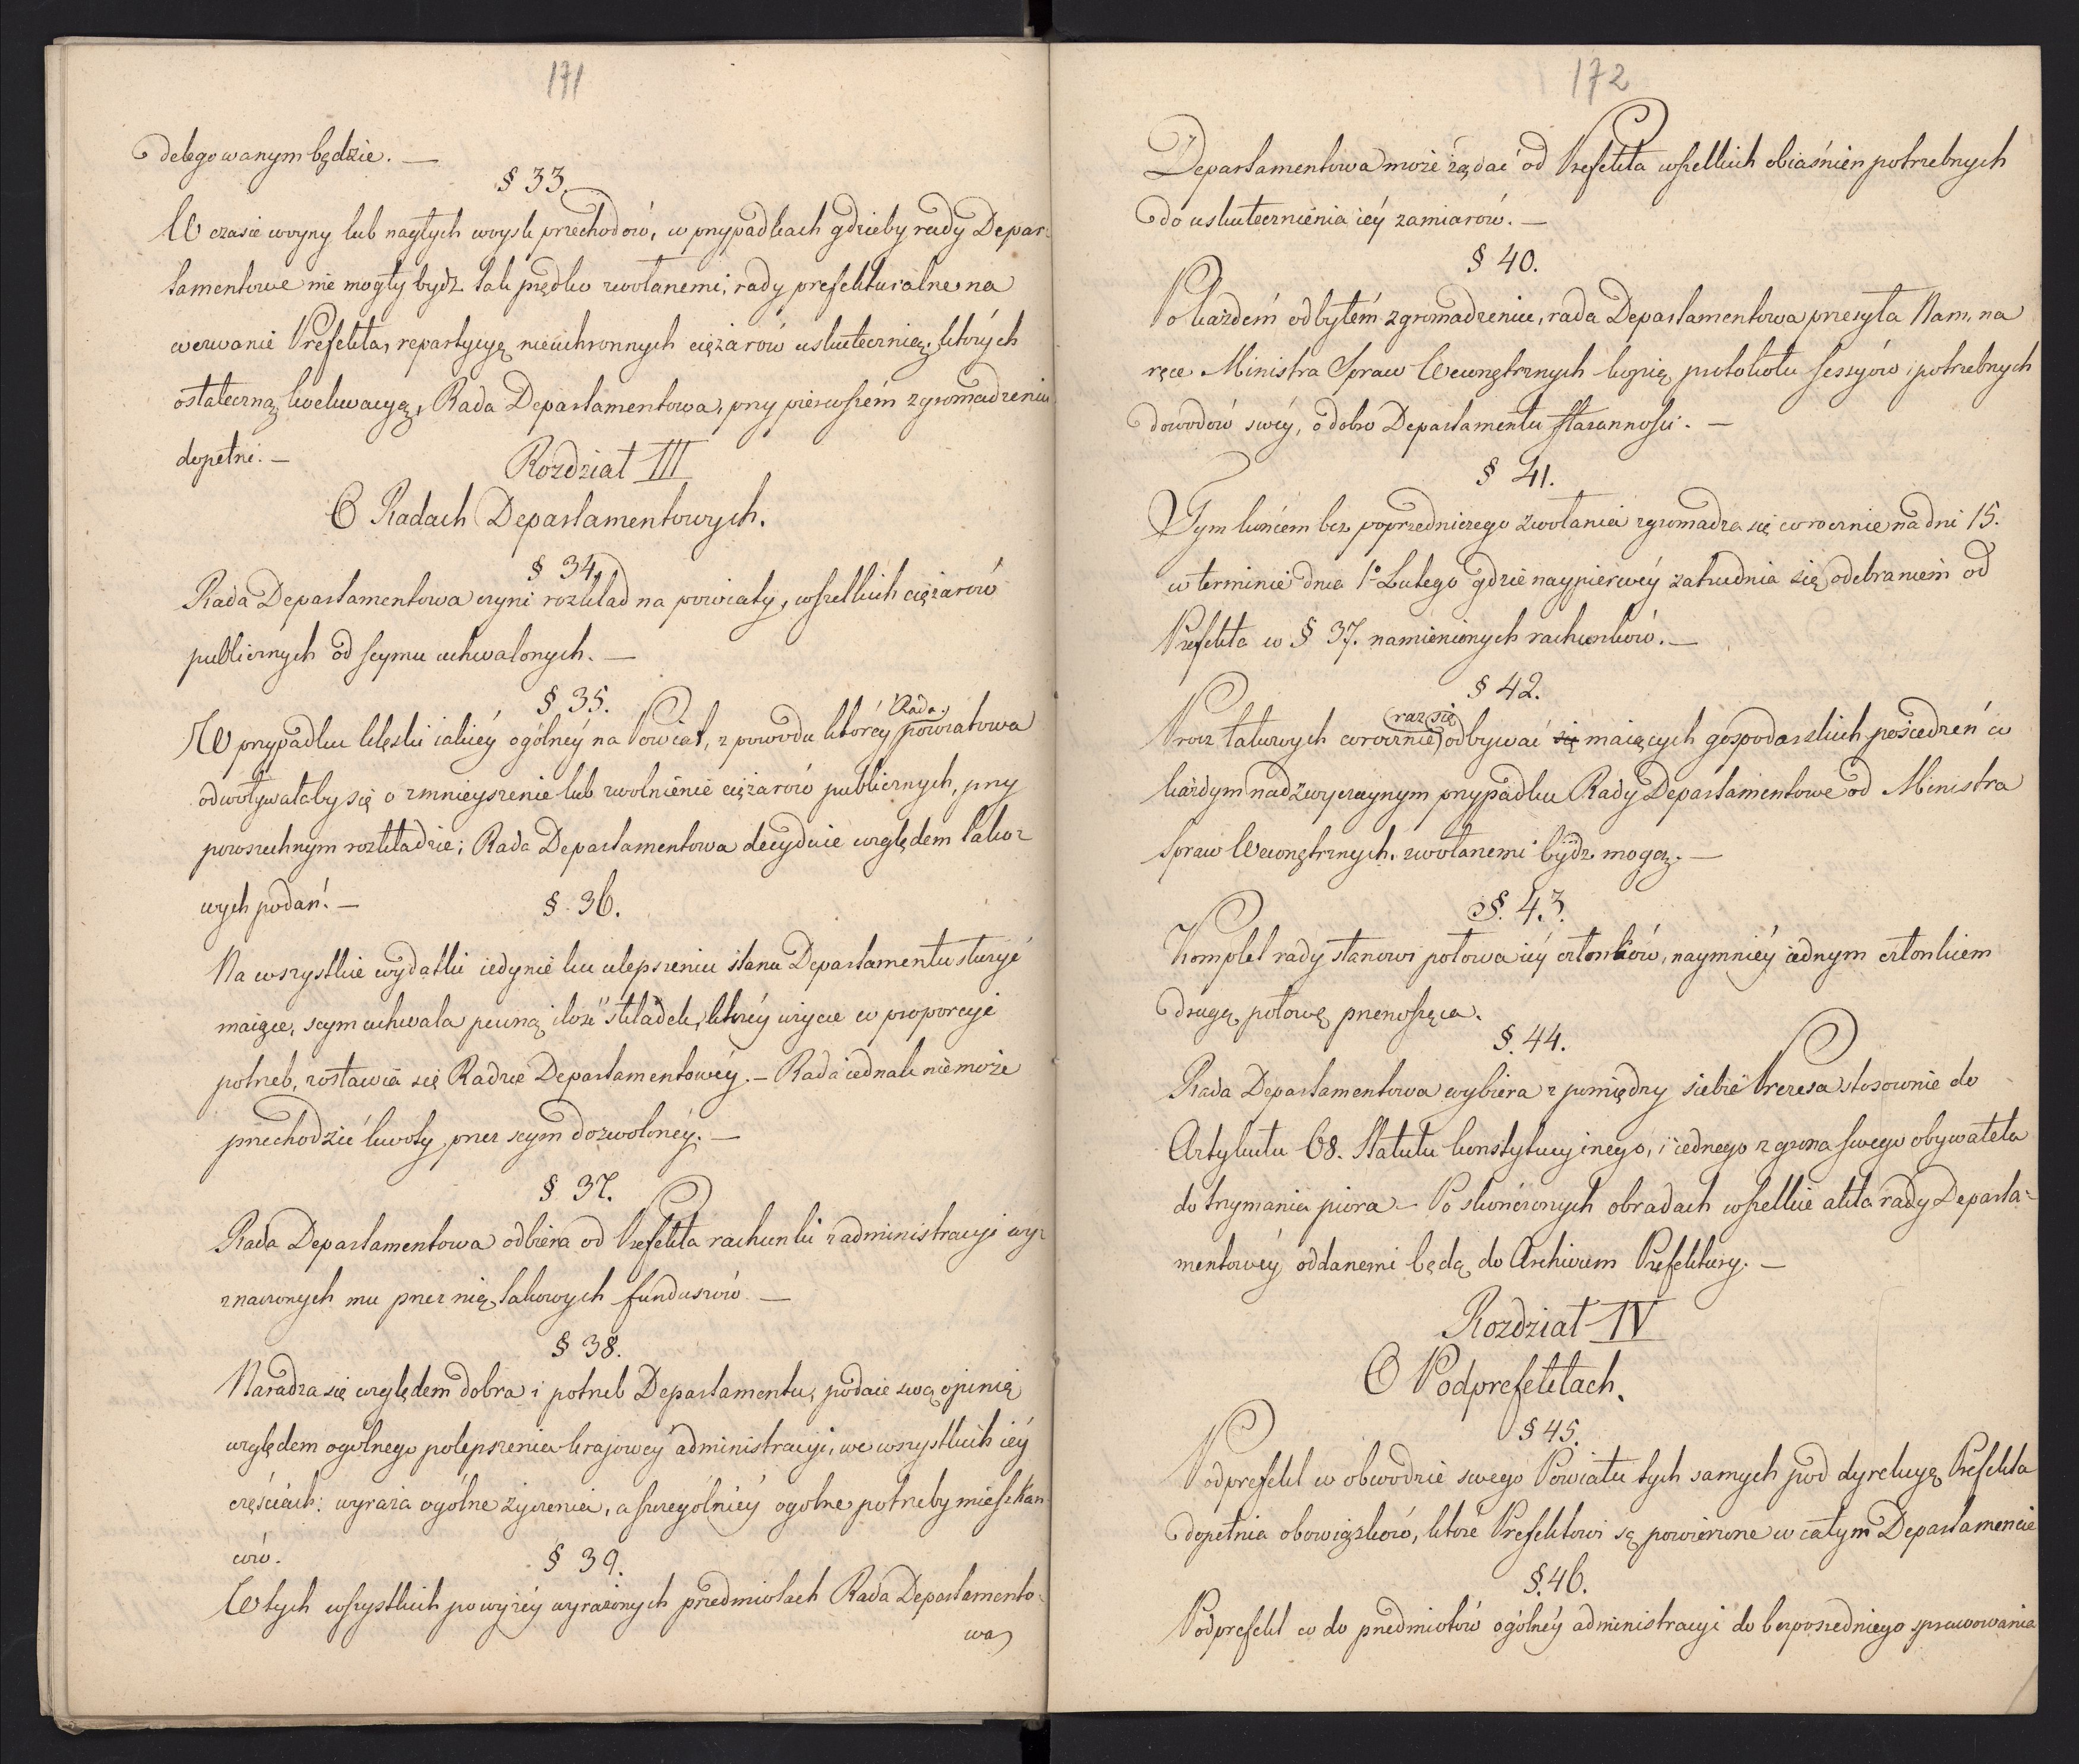 171
delegowanym będzie. —
§ 33.
W czasie woyny lub nagłych woysk przechodów, w przypadkach gdzieby rady Depar-
tamentowe nie mogły bydź tak prędko zwołanemi; rady prefekturalne na
wezwanie Prefekta, repartycyą nieuchronnych ciężarów uskutecznią, których
ostateczną koekwacyą, Rada Departamentowa, przy pierwszém zgromadzeniu
dopełni. —
Rozdział III
O Radach Departamentowych.
§ 34.
Rada Departamentowa czyni rozkład na powiaty, wszelkich ciężarów
publicznych od seymu uchwalonych. —
§ 35.
W przypadku klęski iakiéy ogólnéy na Powiat, z powodu któréy Rada powiatowa
odwoływałaby się o zmnieyszenie lub zwolnienie ciężarów publicznych, przy
powszechnym rozkładzie; Rada Departamentowa decyduie względem tako-
wych podań. —
§. 36.
Na wszystkie wydatki iedynie ku ulepszeniu stanu Departamentu służyć
maiące, seym uchwala pewną ilość składek, któréy użycie w proporcyi
potrzeb, zostawia się Radzie Departamentowéy. — Rada iednak nie może
przechodzić kwoty przez seym dozwolonéy. —
§ 37.
Rada Departamentowa odbiera od Prefekta rachunki z administracyi wy-
znaczonych mu przez nią takowych funduszów —
§ 38.
Naradza się względem dobra i potrzeb Departamentu, podaie swą opinią
względem ogólnego polepszenia krajowéy administracyi, we wszystkich iéy
częściach: wyraża ogólne życzenia, a szczególniéy ogolne potrzeby mieszkań-
ców.
§ 39.
W tych wszystkich powyżéy wyrażonych przedmiotach Rada Departamento-
wa
172
Departamentowa może żądać od Prefekta wszelkich obiaśnień potrzebnych
do uskutecznienia iéy zamiarów. —
§ 40.
Po każdém odbytém zgromadzeniu, rada Departamentowa przesyła Nam, na
ręce Ministra Spraw Wewnętrznych kopią protokołu sessyów i potrzebnych
dowodów swéy, o dobro Departamentu staranności. —
§ 41.
Tym końcem bez poprzedniczego zwołania zgromadza się corocznie na dni 15.
w terminie dnia 1º Lutego gdzie naypierwéy zatrudnia się odebraniem od
Prefekta w § 37. namienionych rachunków. —
§ 42.
Prócz takowych corocznie raz się odbywać się maiących gospodarskich posiedzeń w
każdym nadzwyczaynym przypadku Rady Departamentowe od Ministra
Spraw Wewnętrznych zwołanemi bydź mogą. —
§. 43.
Komplet rady stanowi połowa iéy członków, naymniéy iednym członkiem
drugą połowę przenosząca.
§. 44.
Rada Departamentowa wybiera z pomiędzy siebie Prezesa stosownie do
Artykułu 68. Statutu konstytucyinego, i iednego z grona swego obywatela
do trzymania pióra — Po skończonych obradach wszelkie akta rady Departa-
mentowéy oddanemi będą do Archiwum Prefektury. —
Rozdział IV
O Podprefektach.
§ 45.
Podprefekt w obwodzie swego Powiatu tych samych pod dyrekcyą Prefekta
dopełnia obowiązków, które Prefektowi są powierzone w całym Departamencie
§. 46.
Podprefekt co do przedmiotów ogólnéy administracyi do bezpośredniego sprawowania